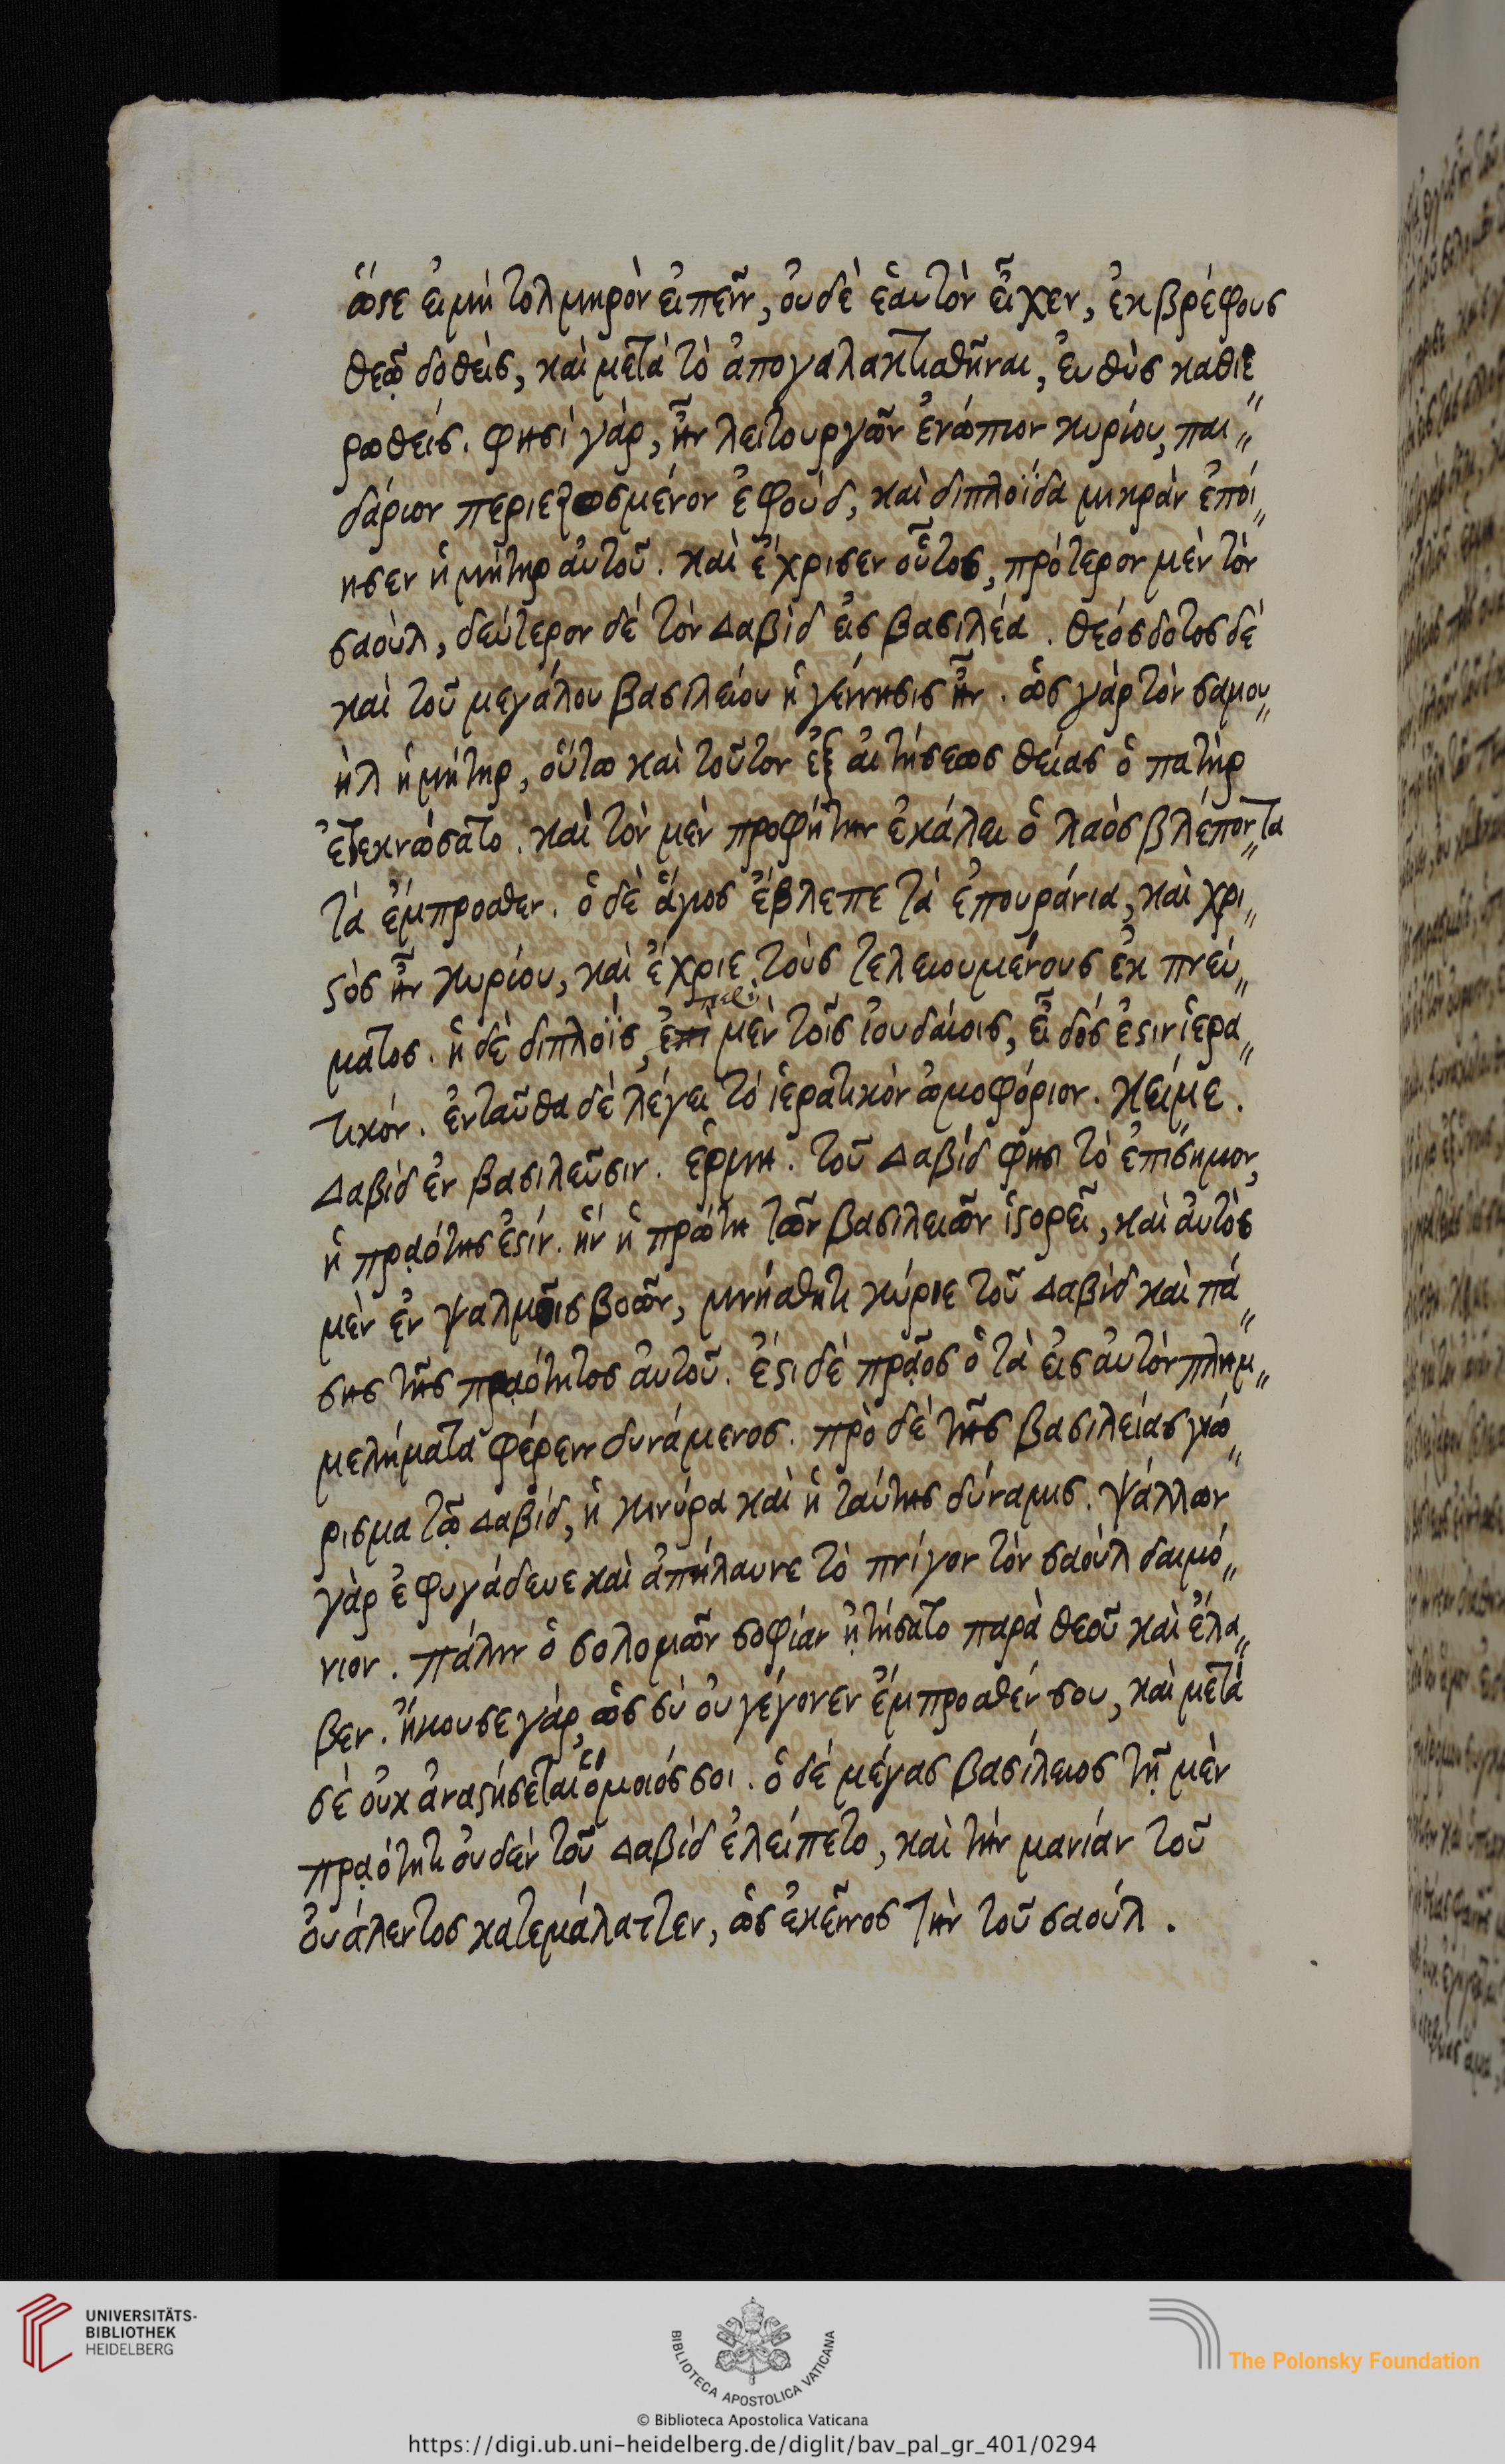 ὥστε εἰ μὴ τολμηρὸν εἰπεῖν, οὐδὲ ἑαυτὸν εἶχεν, ἐκ βρέφους
θεῷ δοθεὶς, καὶ μετὰ τὸ ἀπογαλακτισθῆναι, εὐθὺς καθιε
ρωθείς. φησὶ γάρ, ἦν λειτουργῶν ἐνώπιον κυρίου, παι
δάριον περιεζωσμένον ἐφοὺδ, καὶ διπλοΐδα μικρὰν ἐποί
ησεν ἡ μήτηρ αὐτοῦ. καὶ ἔχρισεν οὗτος, πρότερον μὲν τὸν
σαοὺλ, δεύτερον δὲ τὸν Δαβὶδ εἰς βασιλέα. θεόσδοτος δὲ
καὶ τοῦ μεγάλου βασιλείου ἡ γέννησις ἦν. ὡς γὰρ τὸν σαμου
ὴλ ἡ μήτηρ, οὕτω καὶ τοῦτον ἐξ αἰτήσεως θείας ὁ πατὴρ
ἐτεκνώσατο. καὶ τὸν μὲν προφήτην ἐκάλει ὁ λαὸς βλέποντα
τὰ ἔμπροσθεν. ὁ δὲ ἅγιος ἔβλεπε τὰ ἐπουράνια, καὶ χρι
στὸς ἦν κυρίου, καὶ ἔχριε τοὺς τελειουμένους ἐκ πνεύ
ματος. ἡ δὲ διπλοῒς, ἐπὶ μὲν τοῖς ἰουδαίοις, εἶδός ἐστιν ἱερα
τικόν. ἐνταῦθα δὲ λέγει τὸ ἱερατικὸν ὠμοφόριον. κείμε.
Δαβὶδ ἐν βασιλεῦσιν. ἑρμη. τοῦ Δαβίδ φησι τὸ ἐπίσημον,
ἡ πρᾳότης ἐστίν. ἣν ἡ πρώτη τῶν βασιλειῶν ἱστορεῖ, καὶ αὐτὸς
μὲν ἐν ψαλμοῖς βοῶν, μνήσθητι κύριε τοῦ Δαβὶδ καὶ πά
σης τῆς πρᾳότητος αὐτοῦ. ἔστι δὲ πρᾷος ὁ τὰ εἰς αὐτὸν πλημ
μελήματα φέρειν δυνάμενος. πρὸ δὲ τῆς βασιλείας γνώ
ρισμα τῷ Δαβίδ, ἡ κινύρα καὶ ἡ ταύτης δύναμις. ψάλλων
γὰρ ἐφυγάδευε καὶ ἀπήλαυνε τὸ πνίγον τὸν σαοὺλ δαιμό
νιον. πάλιν ὁ σολομῶν σοφίαν ᾐτήσατο παρὰ θεοῦ καὶ ἔλα
βεν. ἤκουσε γάρ, ὡς σὺ οὐ γέγονεν ἔμπροσθέν σου, καὶ μετὰ
σὲ οὐκ ἀναστήσεται ὅμοιός σοι. ὁ δὲ μέγας βασίλειος τῇ μὲν
πρᾳότητι οὐδὲν τοῦ Δαβὶδ ἐλείπετο, καὶ τὴν μανίαν τοῦ
οὐάλεντος κατεμάλαττεν, ὡς ἐκεῖνος τὴν τοῦ σαούλ.
UNIVERSITÄTS-
BIBLIOTHEK
HEIDELBERG
BIBLIOTECA APOSTOLICA VATICANA
The Polonsky Foundation
© Biblioteca Apostolica Vaticana
https://digi.ub.uni-heidelberg.de/diglit/bav_pal_gr_401/0294